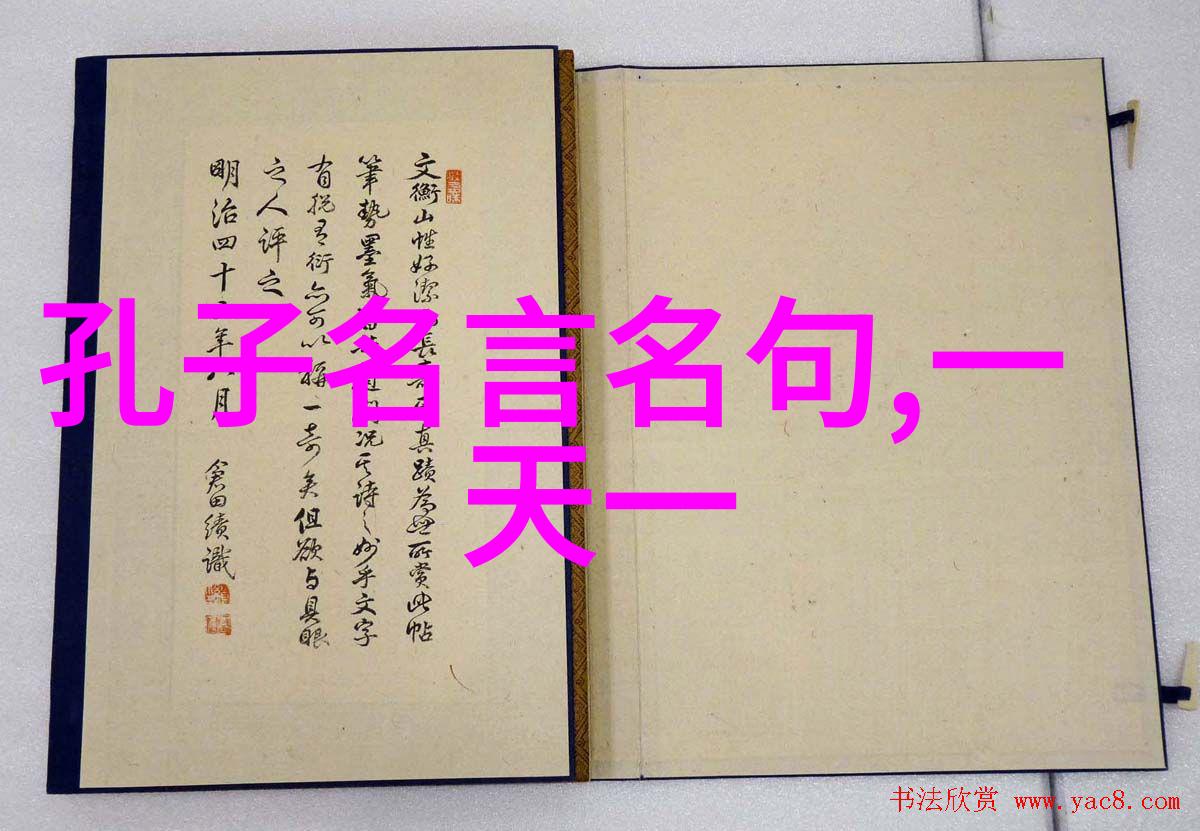 孔子名言名句,一
天一
文衡山性好潔 長 真蹟為世所賞此帖
筆勢墨氣 況其詩之妙乎文字
有挩有衍亦可以稱一奇矣但欲与具眼
之人評之
明治四十 年八月 倉田績識
书法欣赏 www.yac8.com